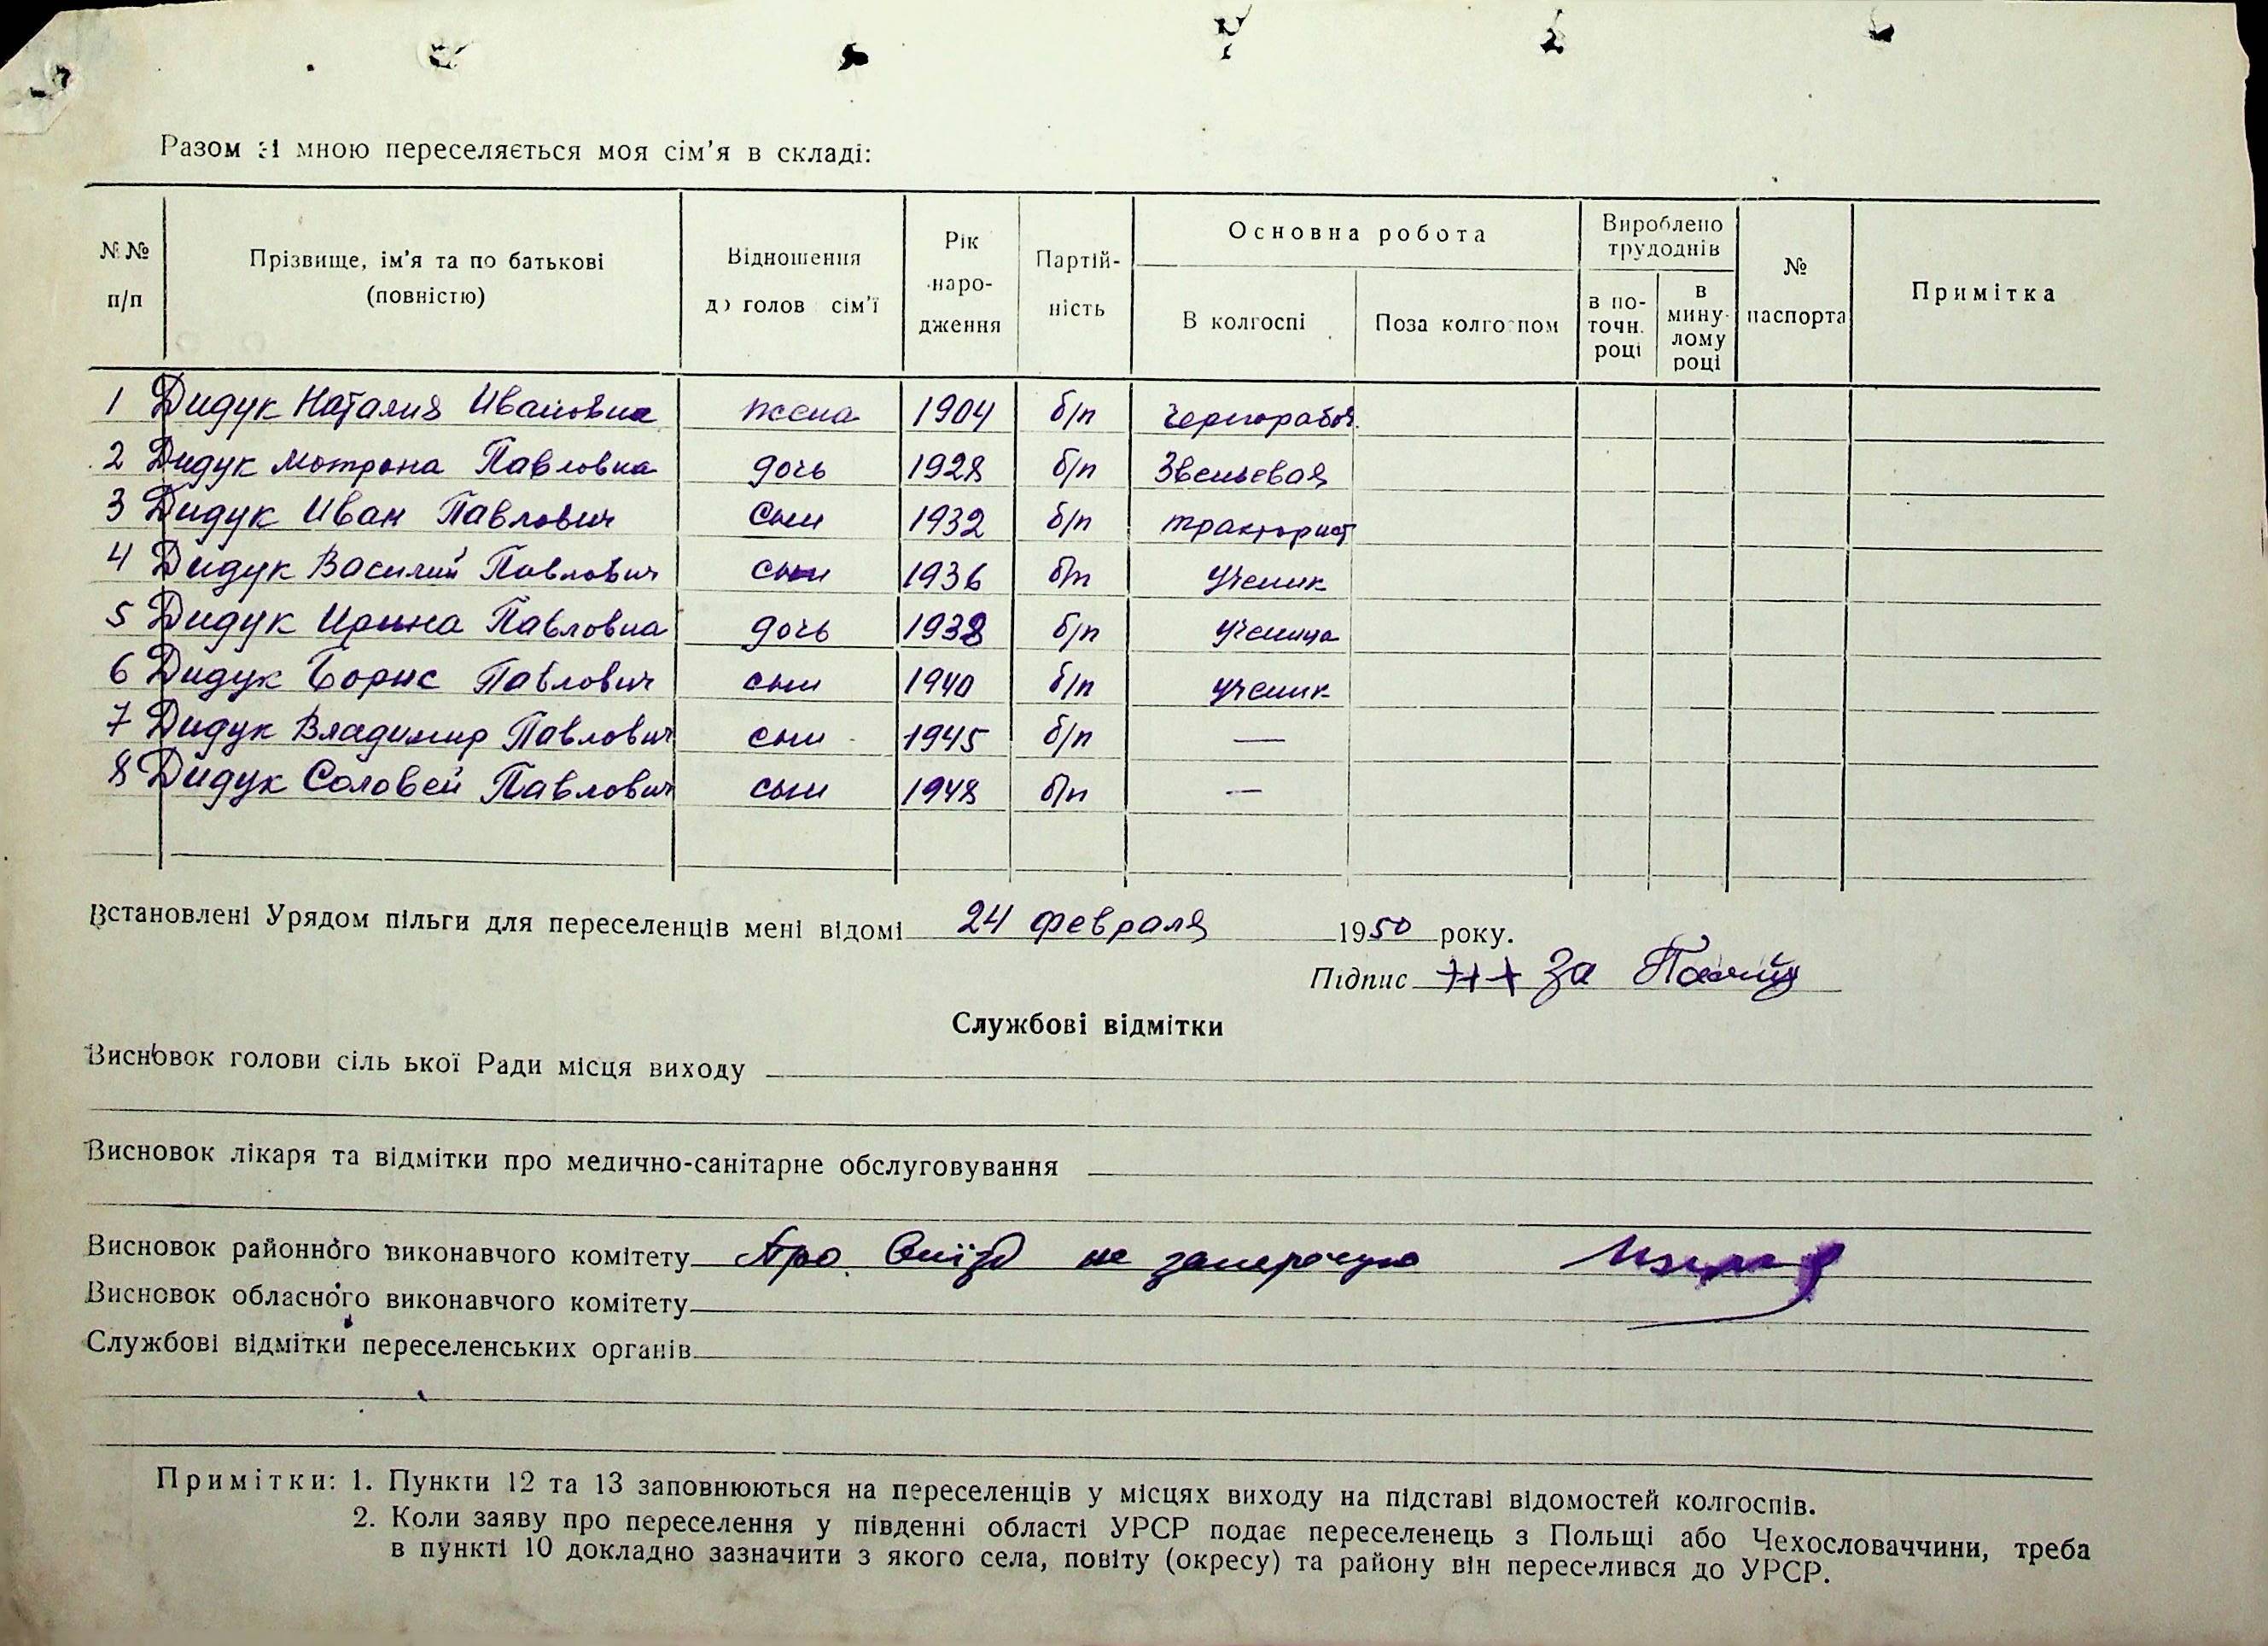 Разом зі мною переселяється моя сім’я в складі:
№№ п/п | Прізвище, ім’я та по батькові (повністю) | Відношення до голов сім’ї | Рік народження | Партійність | Основна робота | Вироблено трудоднів | № паспорта | Примітка
В колгоспі | Поза колгоспом | в поточн. році | в минулому році
1 Дидук Наталия Ивановна жена 1904 б/п чернорабоч.
2 Дидук Мотрона Павловна дочь 1928 б/п Звеньевая
3 Дидук Иван Павлович сын 1932 б/п тракторист
4 Дидук Василий Павлович сын 1936 б/п ученик
5 Дидук Ирина Павловна дочь 1938 б/п ученица
6 Дидук Борис Павлович сын 1940 б/п ученик
7 Дидук Владимир Павлович сын 1945 б/п —
8 Дидук Соловей Павлович сын 1948 б/п —
Встановлені Урядом пільги для переселенців мені відомі 24 февраля 1950 року.
Підпис +++ за
Службові відмітки
Висновок голови сільської Ради місця виходу
Висновок лікаря та відмітки про медично-санітарне обслуговування
Висновок районного виконавчого комітету Про виїзд не заперечую
Висновок обласного виконавчого комітету
Службові відмітки переселенських органів
Примітки: 1. Пункти 12 та 13 заповнюються на переселенців у місцях виходу на підставі відомостей колгоспів.
2. Коли заяву про переселення у південні області УРСР подає переселенець з Польщі або Чехословаччини, треба
в пункті 10 докладно зазначити з якого села, повіту (окресу) та району він переселився до УРСР.